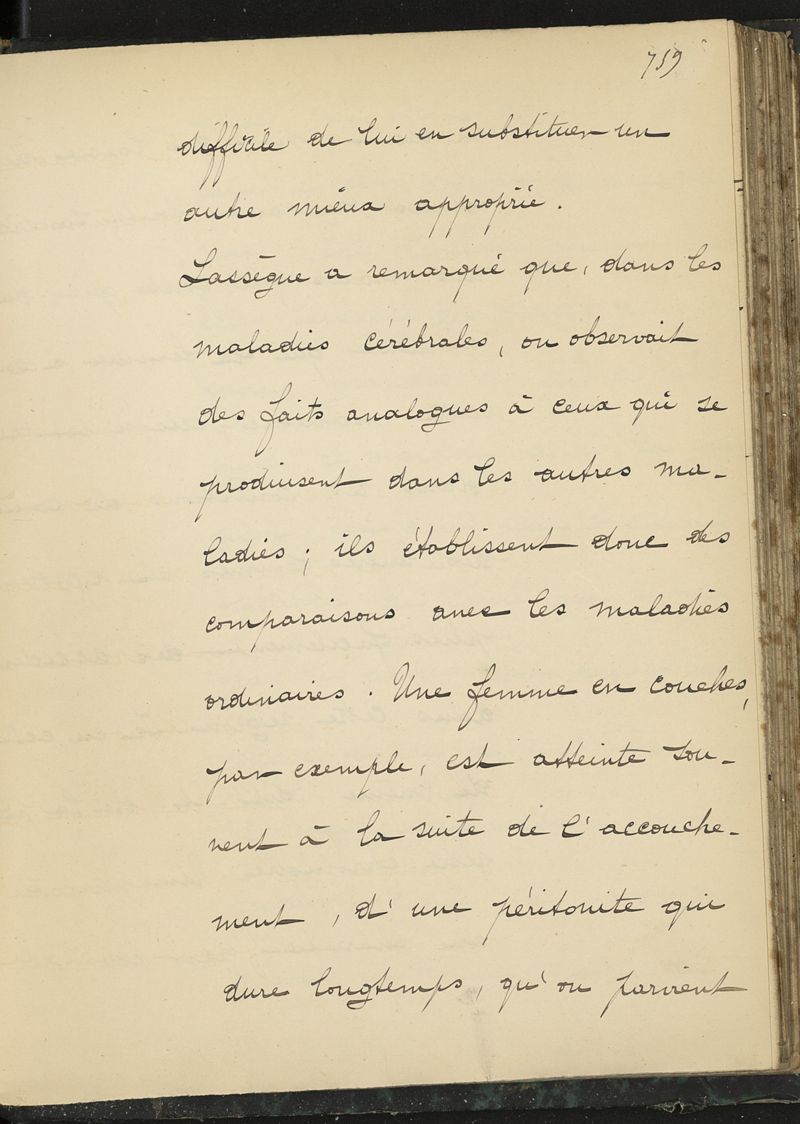 759
difficile de lui en substituer un
autre mieux approprié.
Lassègue a remarqué que, dans les
maladies cérébrales, on observait
des faits analogues à ceux qui se
produisent dans les autres ma-
ladies ; ils établissent donc des
comparaisons avec les maladies
ordinaires. Une femme en couches,
par exemple, est atteinte sou-
vent à la suite de l'accouche-
ment, d'une péritonite qui
dure longtemps, qu'on parvient